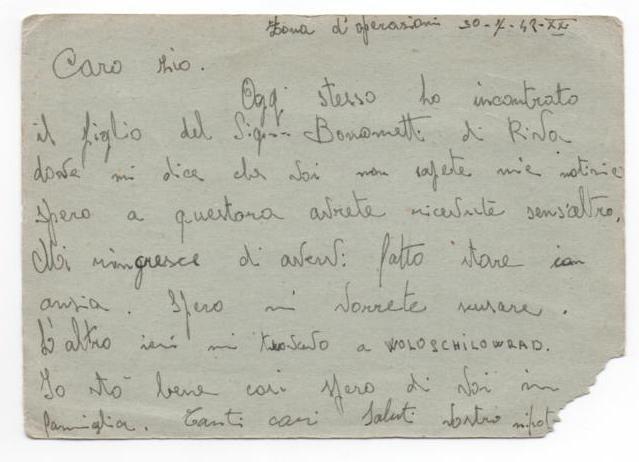 Zona d'operazioni 30-7-42-XX
Caro zio.
Oggi stesso ho incontrato
il figlio del Sig. Bonometti di Riva
dove mi dice che voi non sapete mie notizie
spero a questora avrete ricevute sens'altro.
Mi ringresce di avervi fatto stare in
ansia. Spero mi vorrete scusare.
L'altro ieri mi trovavo a WOLOSCHILOWRAD.
Io stò bene cosi spero di voi in
famiglia. Tanti cari saluti vostro nipot